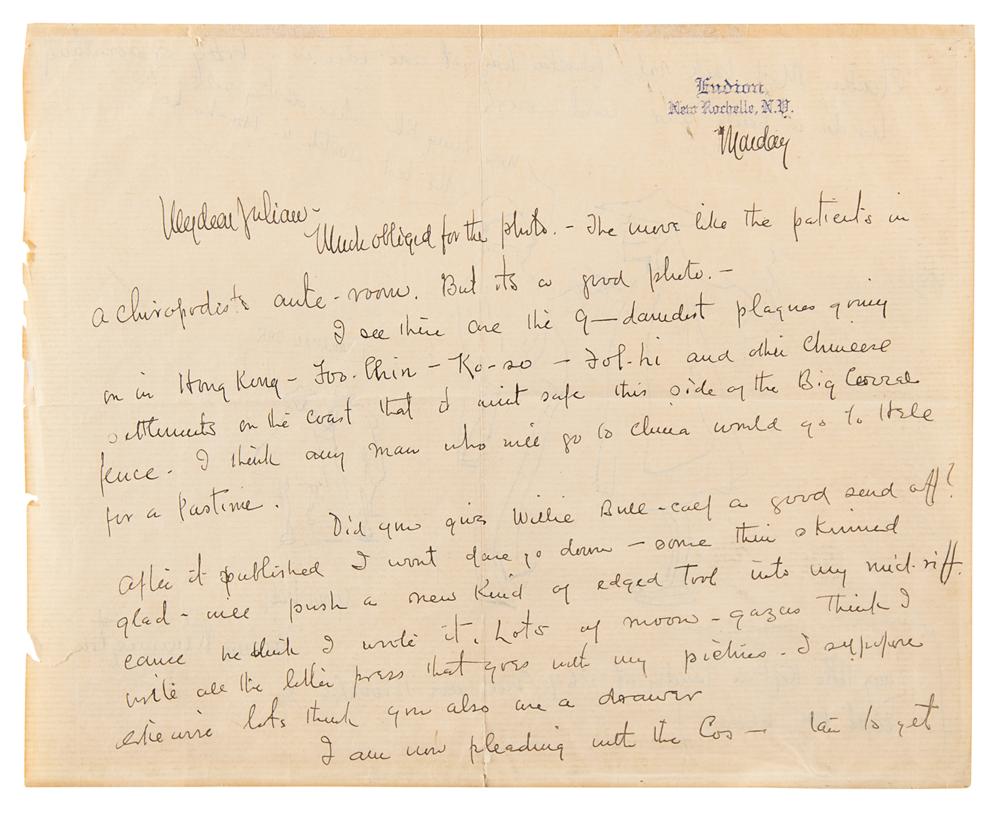 Endion,
New Rochelle, N.Y.
Monday
My dear Julian -
Much obliged for the photo. - The more like the patients in
a chiropodists ante-room. But its a good photo. -
I see there are the g—darndest plagues going
on in Hong Kong - Foo-Chin - Ko-so - Fol-hi and other Chineese
settlements on the coast that it aint safe this side of the Big Corral
fence. I think any man who will go to China would go to Hele
for a Pastime.
Did you give Willie Bull-calf a good send off?
After it published I wont dare go down - some thin skinned
glad- will push a new kind of edged tool into my mid-riff.
cause he think I wrote it. Lots of moon-gazers think I
write all the letter press that goes with my pictures. I suppose
likewise lots think you also are a drawer
I am now pleading with the Cos — to get